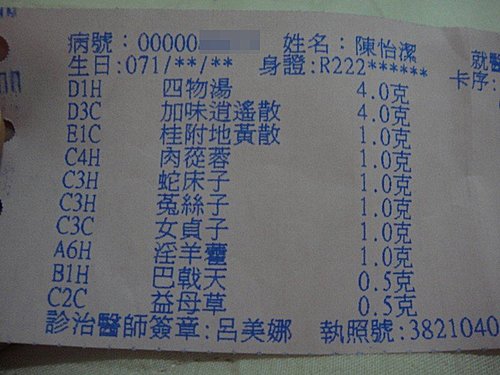 病號：00000 姓名：陳怡潔
生日:071/**/** 身證:R222****** 就醫
卡序:
D1H 四物湯 4.0克
D3C 加味逍遙散 4.0克
E1C 桂附地黃散 1.0克
C4H 肉蓯蓉 1.0克
C3H 蛇床子 1.0克
C3H 菟絲子 1.0克
C3C 女貞子 1.0克
A6H 淫羊藿 1.0克
B1H 巴戟天 0.5克
C2C 益母草 0.5克
診治醫師簽章:呂美娜 執照號:3821040